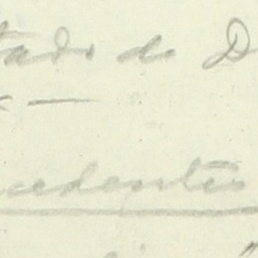 tado de D
cedentes